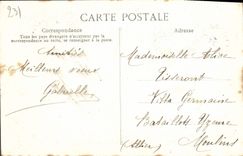 231
CARTE POSTALE
Correspondance
Tous les pays étrangers n'acceptent pas la
correspondance au recto, se renseigner à la poste
Adresse
Amitiés
Meilleurs vœux
Gabrielle
Mademoiselle Alice
Villa Germaine
Moulins
(Allier)